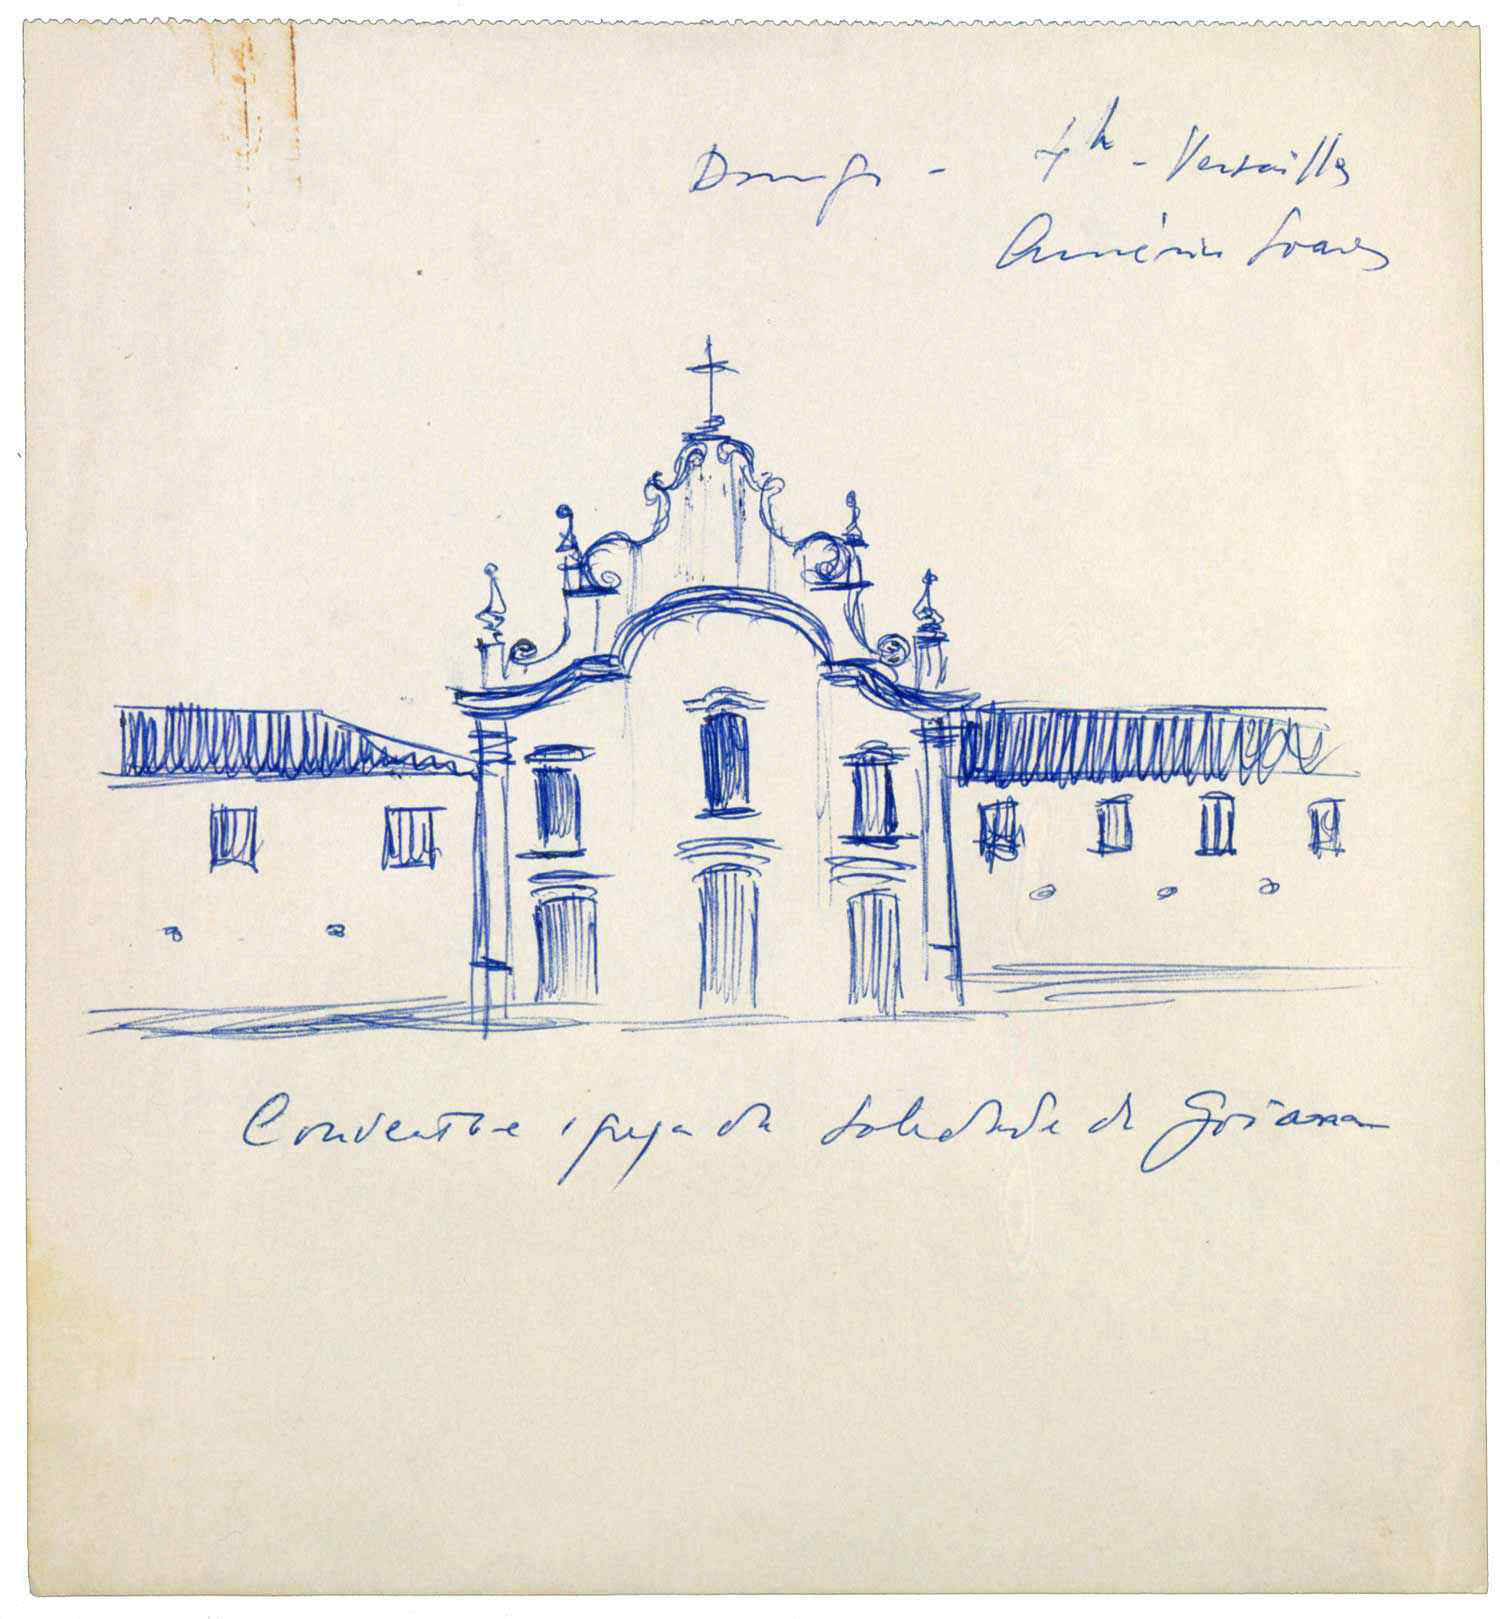 Domingo - 4h - Versailles
Américo Soares
Convento e igreja da Soledade de Goiana